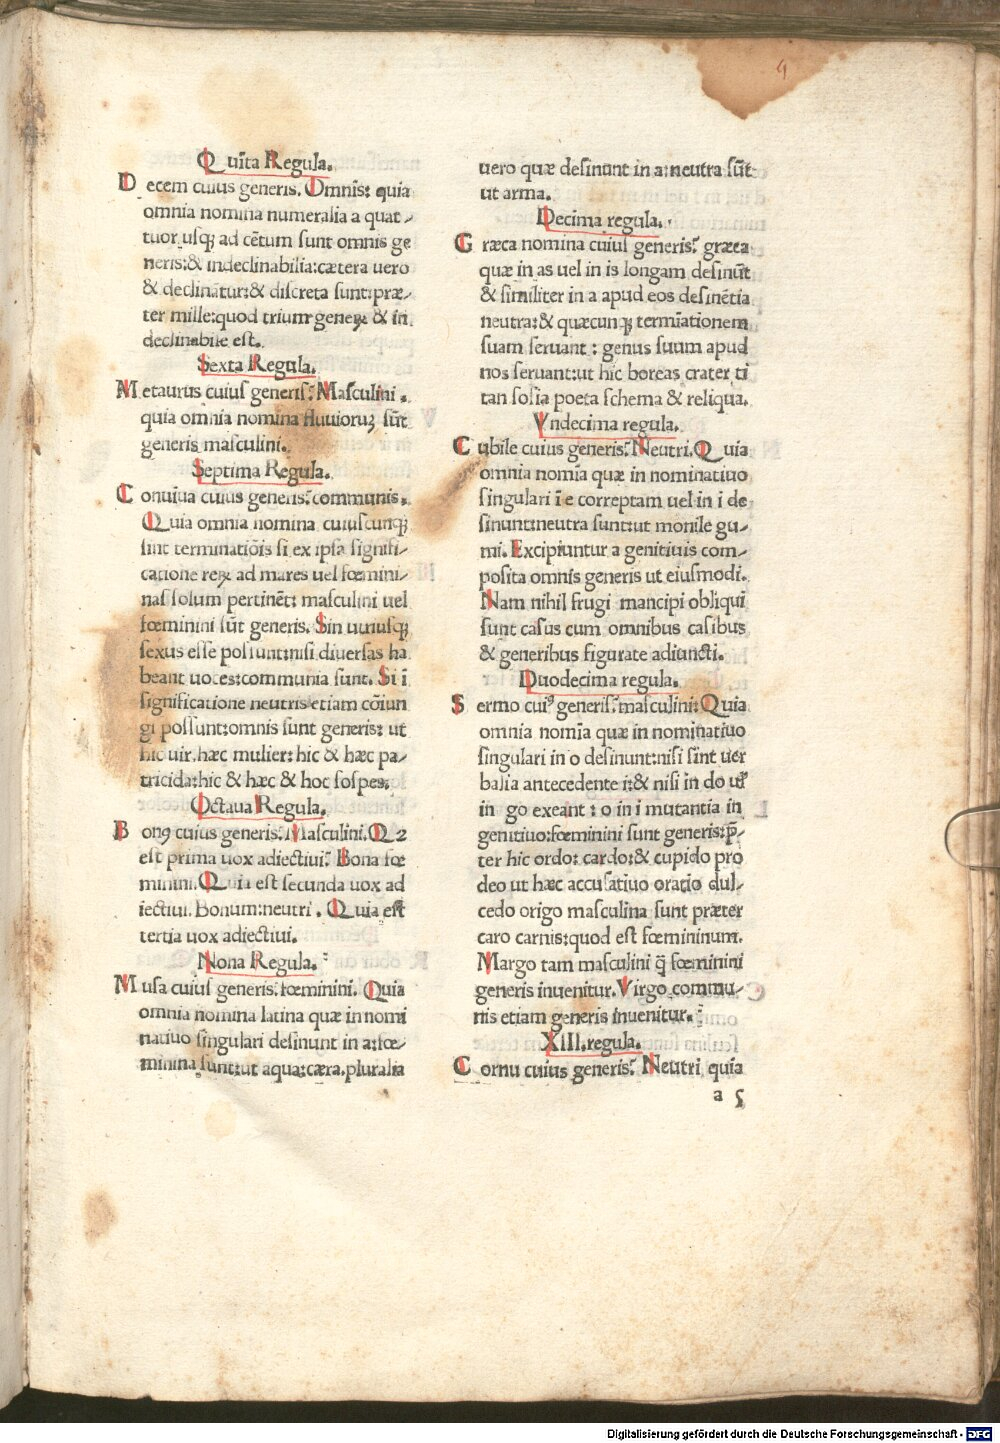 4
Quīta Regula.
Decem cuius generis. Omnis: quia
omnia nomina numeralia a quat-
tuor usqꝫ ad cētum sunt omnis ge
neris:& indeclinabilia:cætera uero
& declinātur:& discreta sunt:præ-
ter mille:quod trium geneꝝ & in
declinabile est.
Sexta Regula.
Metaurus cuius generis? Masculini.
quia omnia nomina fluuioruꝫ sūt
generis masculini.
Septima Regula.
Conuiua cuius generis? communis.
Quia omnia nomina cuiuscunqꝫ
sint terminatiōis si ex ipsa signifi-
catione reꝝ ad mares uel fœmini-
nas solum pertinēt: masculini uel
fœminini sūt generis. Sin utriusqꝫ
sexus esse possunt:nisi diuersas ha
beant uoces:communia sunt. Si ī
significatione neutris etiam cōiun
gi possunt:omnis sunt generis: ut
hic uir.hæc mulier: hic & hæc pa-
tricida:hic & hæc & hoc sospes.
Octaua Regula.
Bonꝯ cuius generis? Masculini. Qꝛ
est prima uox adiectiui? Bona fœ
minini. Quia est secunda uox ad
iectiui. Bonum:neutri. Quia est
tertia uox adiectiui.
Nona Regula.
Musa cuius generis? fœminini. Quia
omnia nomina latina quæ in nomi
natiuo singulari desinunt in a:fœ-
minina sunt:ut aqua:cæra.pluralia
uero quæ desinunt in a:neutra sūt
ut arma.
Decima regula.
Græca nomina cuius generis? græca
quæ in as uel in is longam desinūt
& similiter in a apud eos desinētia
neutra:& quæcunqꝫ termīationem
suam seruant: genus suum apud
nos seruant:ut hic boreas crater ti
tan sosia poeta schema & reliqua.
Vndecima regula.
Cubile cuius generis? Neutri. Quia
omnia nomīa quæ in nominatiuo
singulari ī e correptam uel in i de
sinunt:neutra sunt:ut monile gu-
mi. Excipiuntur a genitiuis com-
posita omnis generis ut eiusmodi.
Nam nihil frugi mancipi obliqui
sunt casus cum omnibus casibus
& generibus figurate adiuncti.
Duodecima regula.
Sermo cuiꝰ generis? masculini: Quia
omnia nomīa quæ in nominatiuo
singulari in o desinunt:nisi sint uer
balia antecedente i:& nisi in do uꝉ
in go exeant: o in i mutantia in
genitiuo:fœminini sunt generis:p̄-
ter hic ordo: cardo:& cupido pro
deo ut hæc accusatiuo oratio dul-
cedo origo masculina sunt præter
caro carnis:quod est fœmininum.
Margo tam masculini q̄ fœminini
generis inuenitur. Virgo commu-
nis etiam generis inuenitur.
XIII.regula.
Cornu cuius generis? Neutri quia
a 5
Digitalisierung gefördert durch die Deutsche Forschungsgemeinschaft - DFG